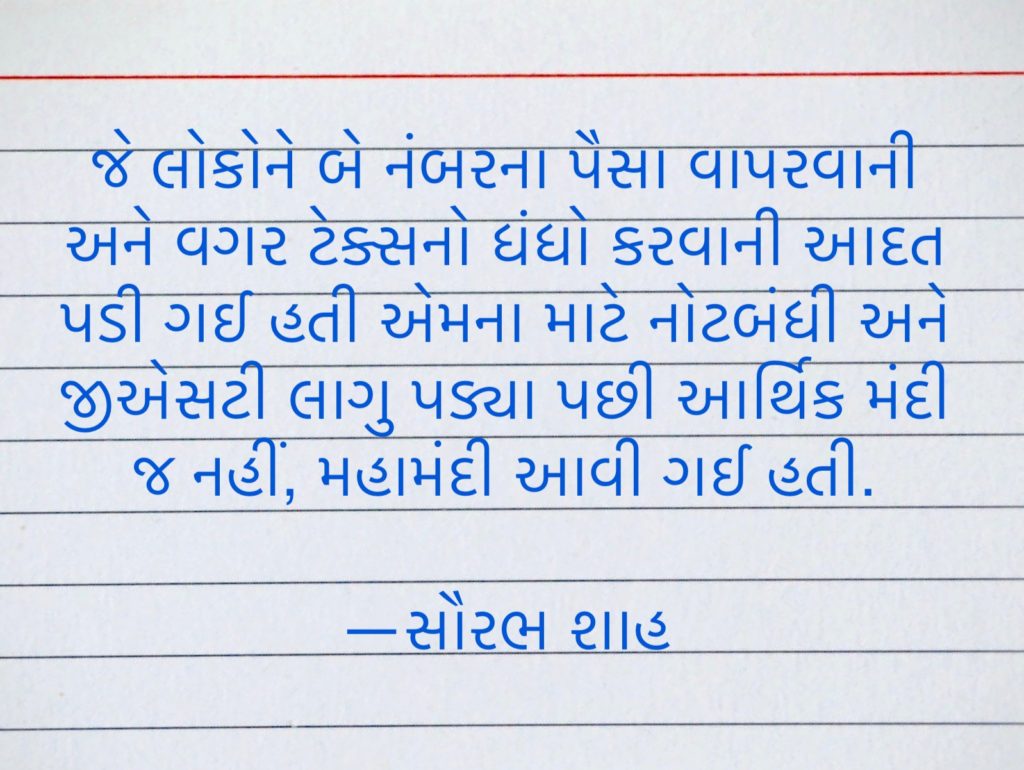 જે લોકોને બે નંબરના પૈસા વાપરવાની
અને વગર ટેક્સનો ધંધો કરવાની આદત
પડી ગઈ હતી એમના માટે નોટબંધી અને
જીએસટી લાગુ પડ્યા પછી આર્થિક મંદી
જ નહીં, મહામંદી આવી ગઈ હતી.
—સૌરભ શાહ